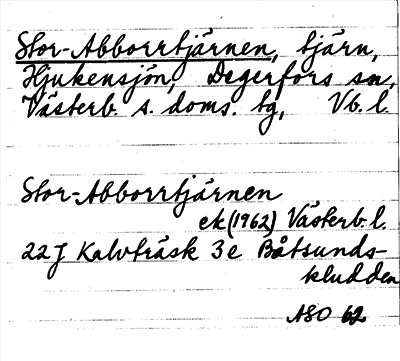 Stor-Abborrtjärnen, tjärn,
Hjukensjön, Degerfors sn,
Västerb. s. doms. tg, Vb. l.
Stor-Abborrtjärnen
ek (1962) Västerb. l.
22J Kalvträsk 3e Båtsunds-
kludden
ASO 62